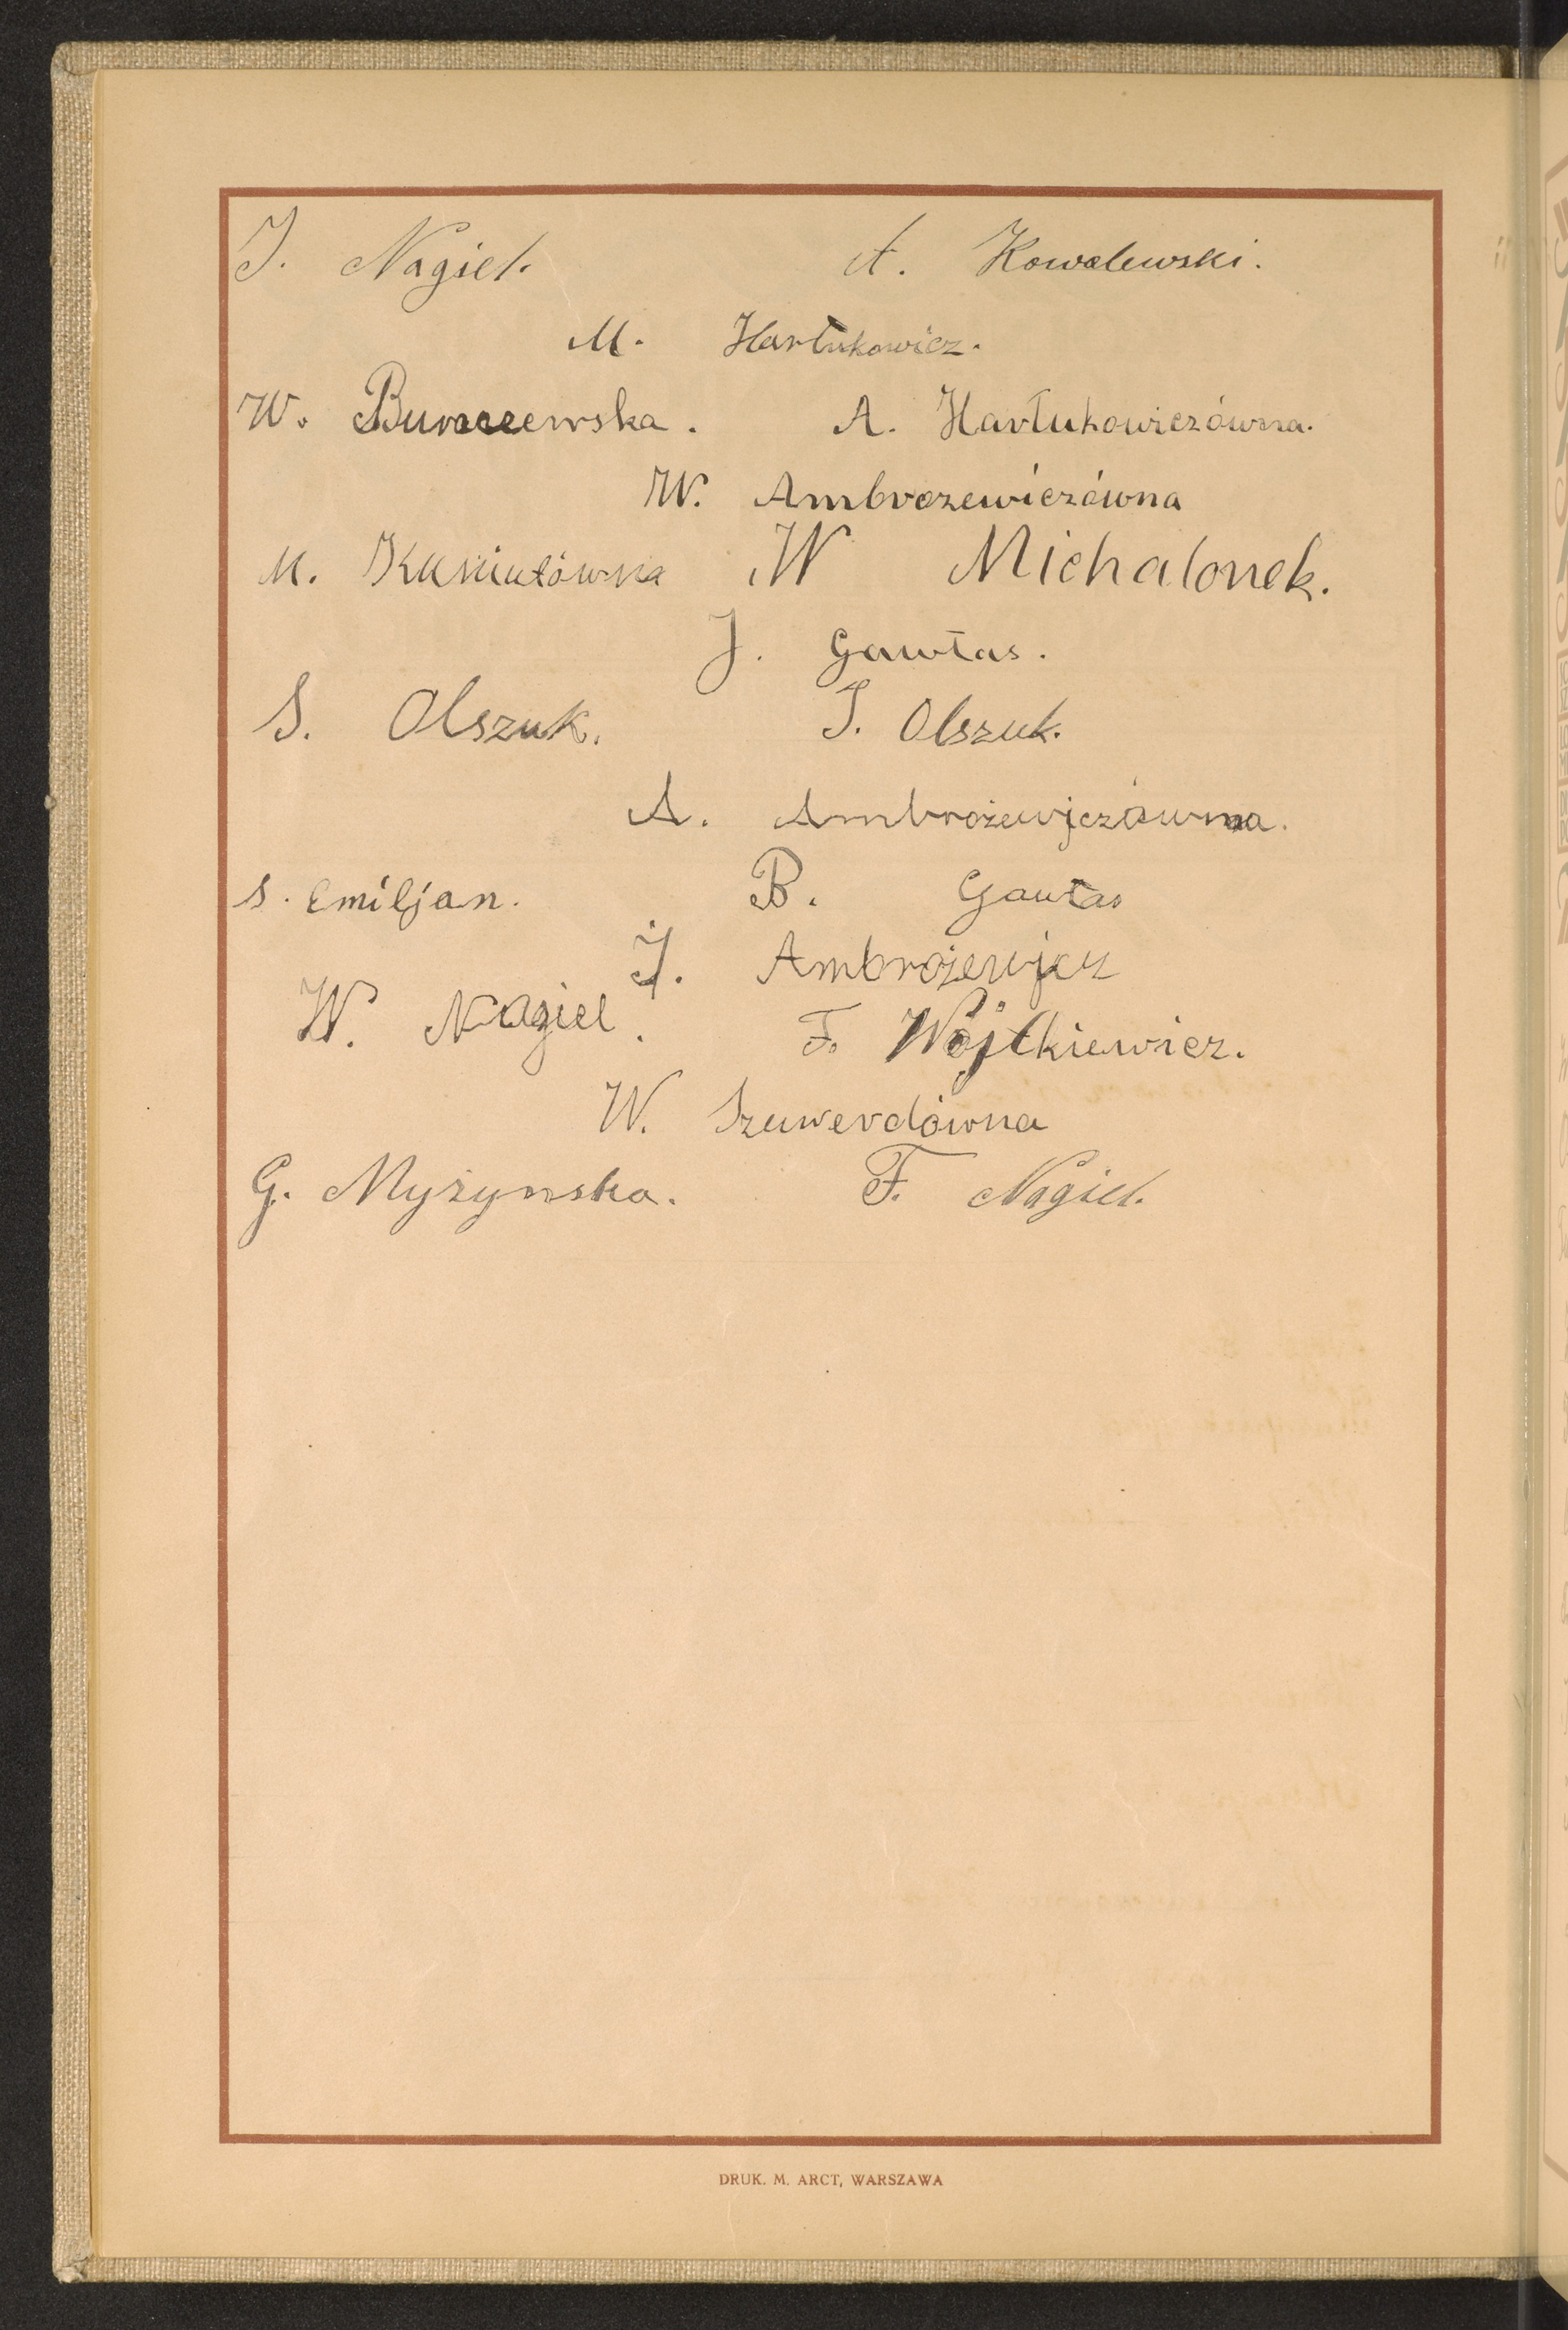 J. Nagiel. A. Kowalewski.
M. Hartukowicz.
W. A. Hartukowiczówna.
W. Ambrozewiczówna
M. W Michalonek.
J. Gawłas.
S. Olszuk. J. Olszuk.
A. Ambrożewjczówna.
S. Emiljan. B. Gawłas
J. Ambrożewjcz
W. Nagiel. F. Wójtkiewicz.
W. Szuwerdówna
G. Myżynska. F. Nagiel.
DRUK. M. ARCT, WARSZAWA